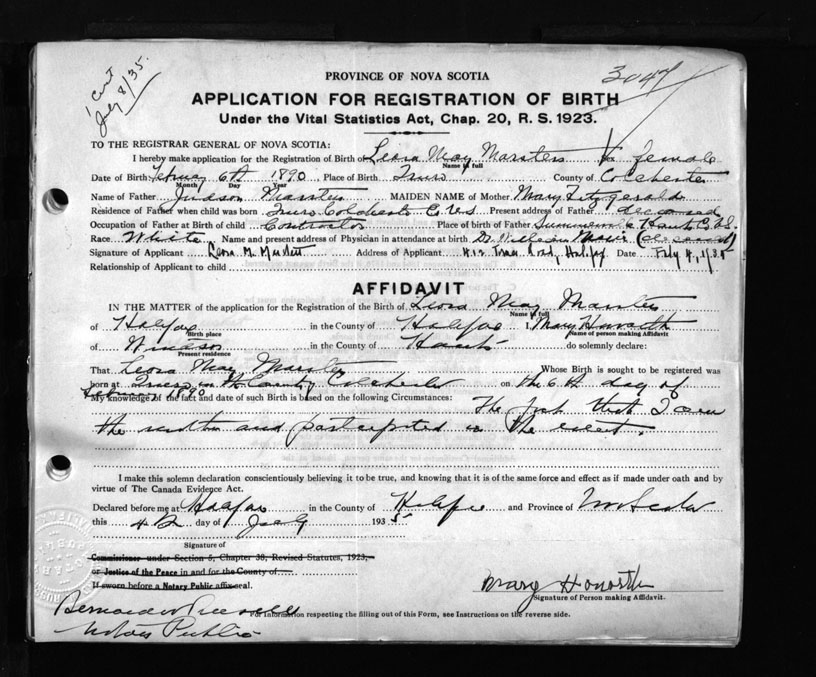 1 Cert
July 8/35.
3047
PROVINCE OF NOVA SCOTIA
APPLICATION FOR REGISTRATION OF BIRTH
Under the Vital Statistics Act, Chap. 20, R. S. 1923.
TO THE REGISTRAR GENERAL OF NOVA SCOTIA:
I hereby make application for the Registration of Birth of Leora May Marsters Sex female
Name in full
Date of Birth 6th 1890 Place of Birth Truro County of Colchester
Month Day Year
Name of Father Judson Marsters MAIDEN NAME of Mother Mary Fitzgerald
Residence of Father when child was born Truro Colchester Co. N.S Present address of Father deceased
Occupation of Father at Birth of Child Contractor Place of birth of Father Hants Co. N.S.
Race White Name and present address of Physician in attendance at birth Dr. William (deceased)
Signature of Applicant Leora M. Address of Applicant Road, Halifax Date
Relationship of Applicant to child
AFFIDAVIT
IN THE MATTER of the application for the Registration of the Birth of Leora May Marsters
Name in full
of Halifax in the County of Halifax I, Mary Howarth
Birth place name of person making Affidavit
of Windsor in the County of Hants do solemnly declare:
Present residence
That Leora May Marsters Whose Birth is sought to be registered was
born at Truro in the County Colchester on the 6th day of
February 1890
My knowledge of the fact and date of such Birth is based on the following Circumstances: The fact that I am
the mother and participated in the event.
I make this solemn declaration conscientiously believing it to be true, and knowing that it is of the same force and effect as if made under oath and by
virtue of The Canada Evidence Act.
Declared before me at Halifax in the County of Halifax and Province of Nova Scotia
this 4th day of July 1935
Signature of
Commissioner under Section 5, Chapter 38, Revised Statutes, 1923,
or Justice of the Peace in and for the County of
If sworn before a Notary Public affix seal.
Mary Howarth
Signature of Person making Affidavit.
Bernard W Russell
For Information respecting the filling out of this Form, see Instructions on the reverse side.
Notary Public